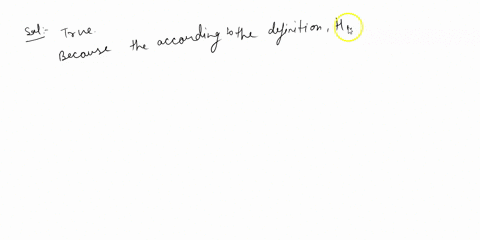 Sol:- True.
Because the according to the definition,